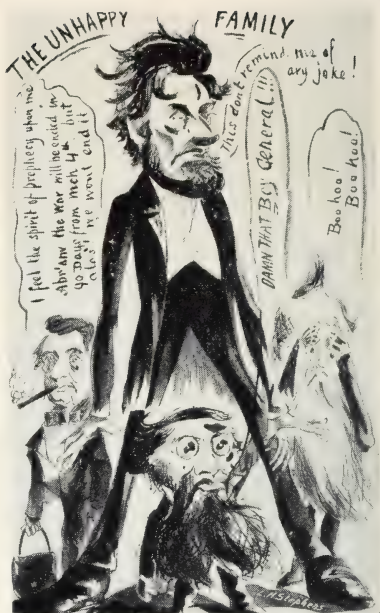 THE UNHAPPY FAMILY
I feel the spirit of prophecy upon me
Abr'am the War will be ended in
90 Days from mch 4th but
alas! we wont end it
This don't remind me of
any joke!
DAMN THAT BOY General!!!
Boo hoo!
Boo hoo!